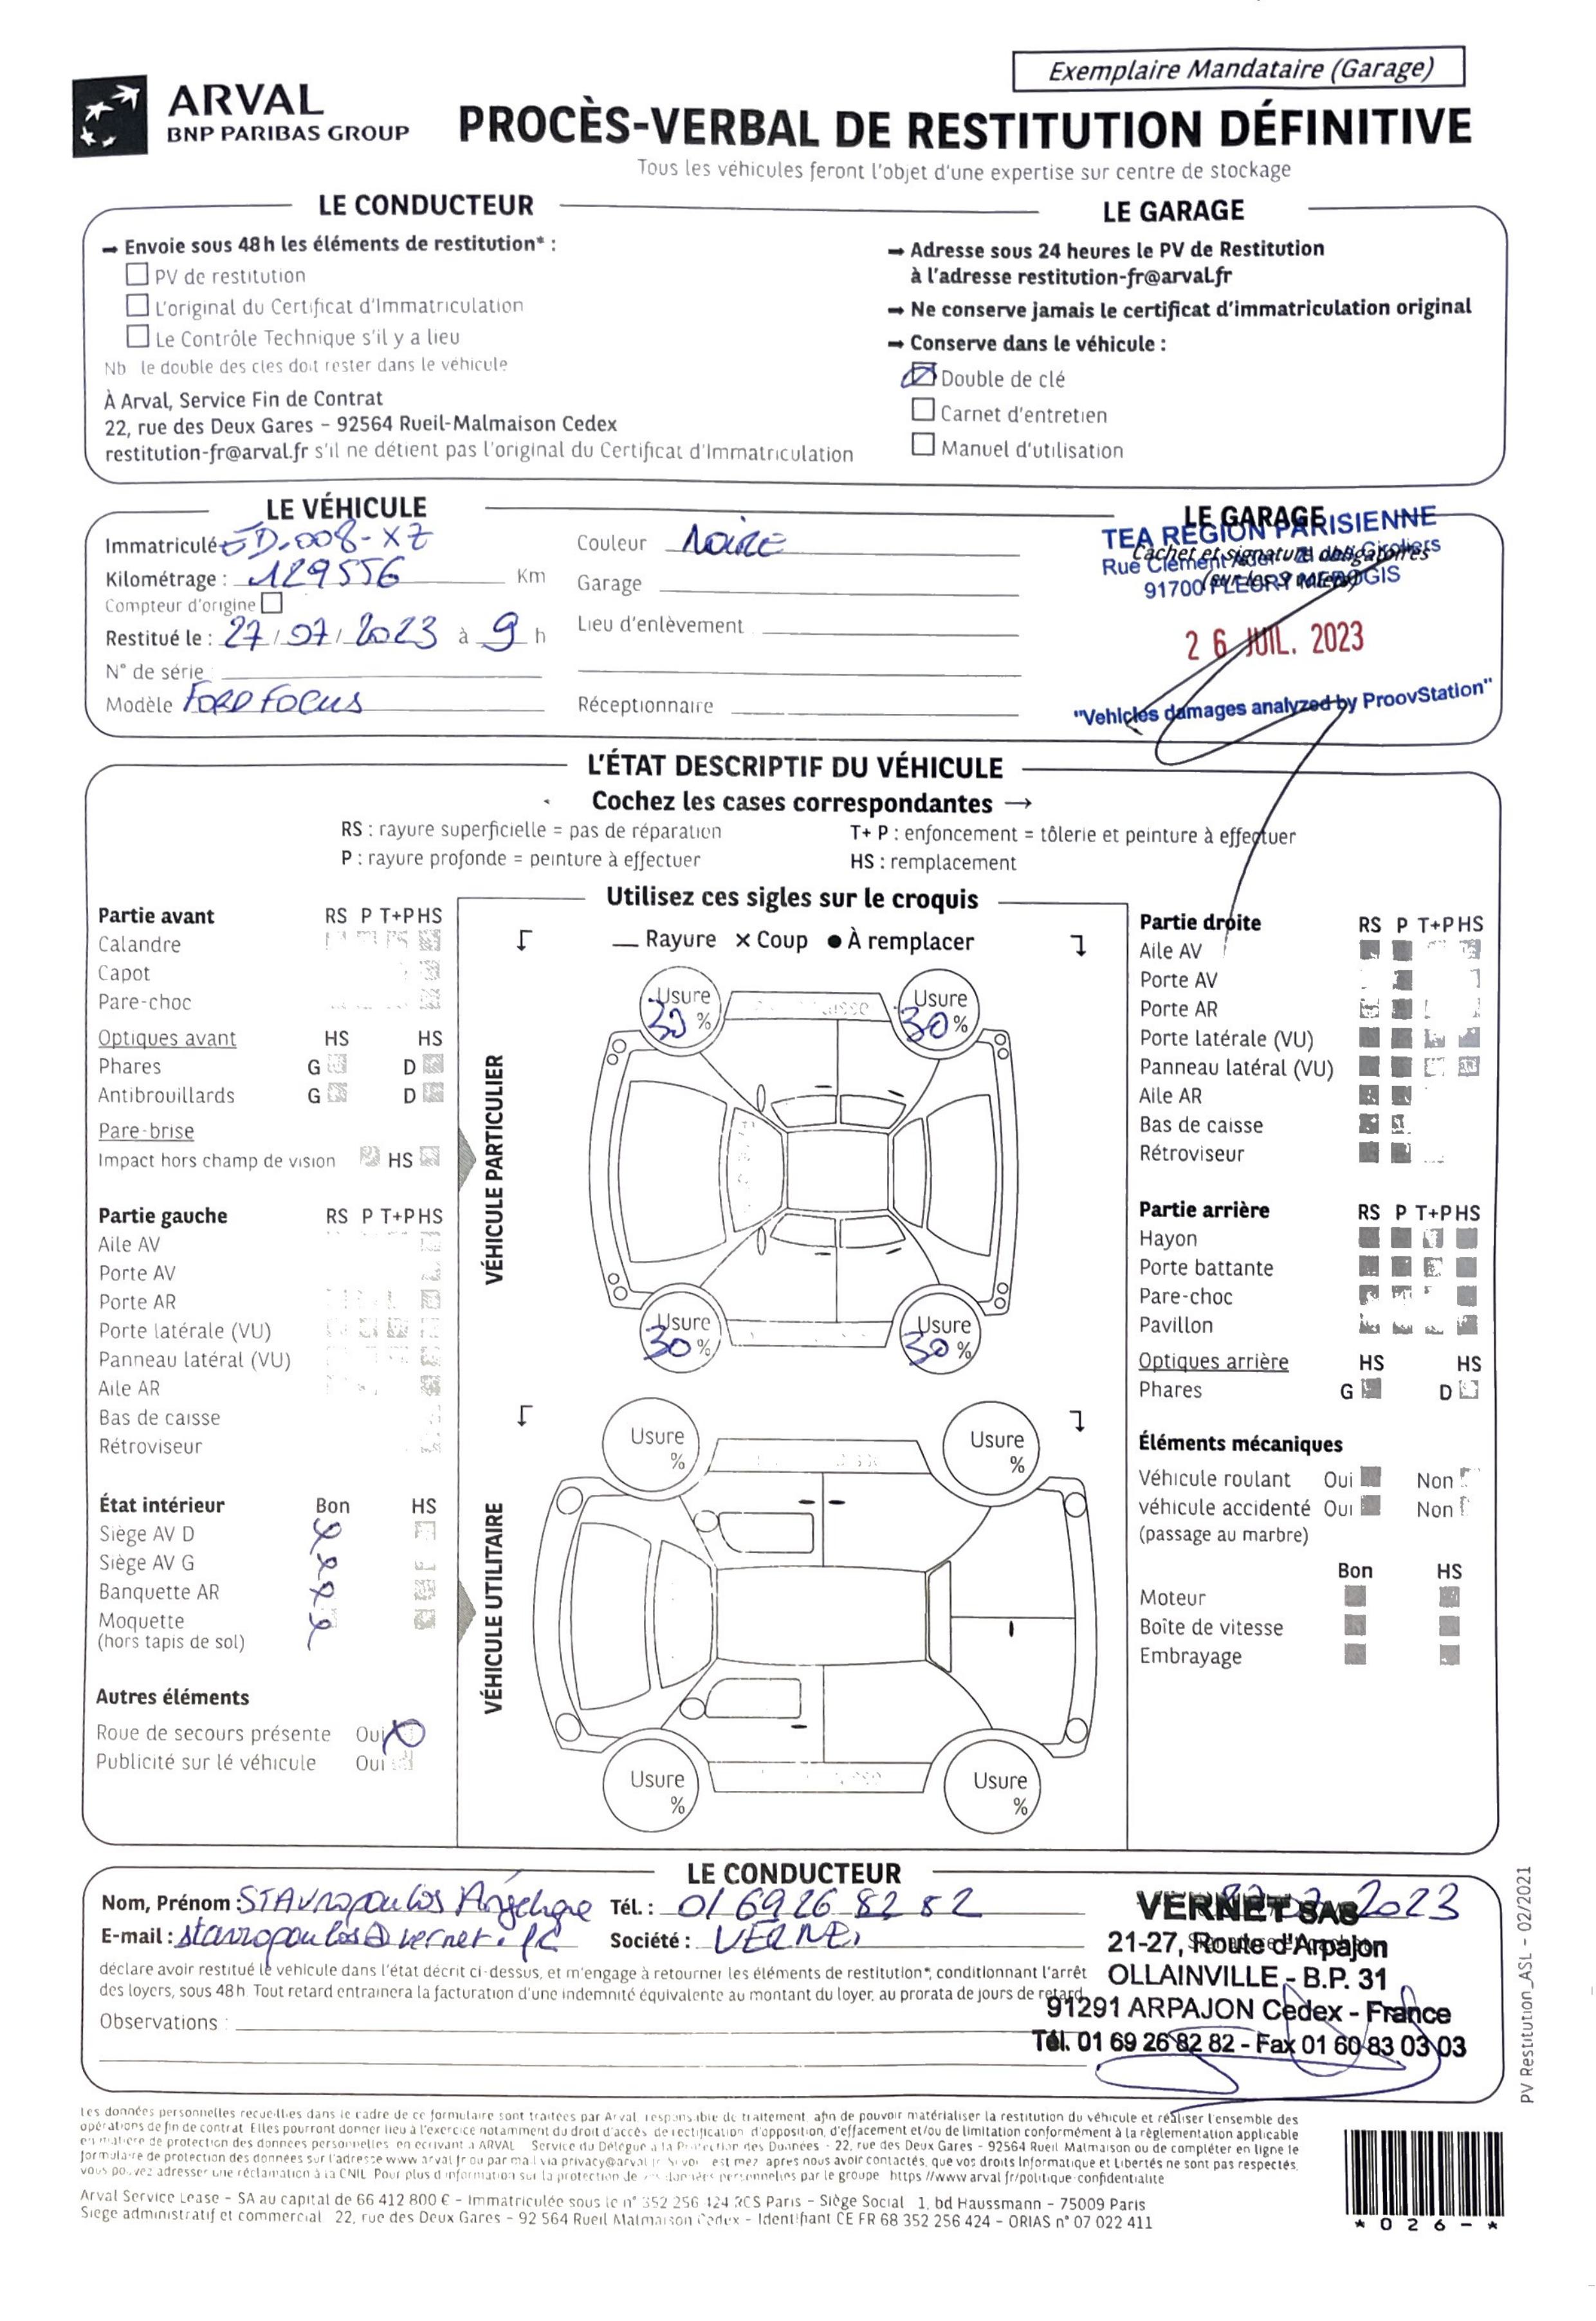 Exemplaire Mandataire (Garage)
ARVAL
BNP PARIBAS GROUP
PROCÈS-VERBAL DE RESTITUTION DÉFINITIVE
Tous les véhicules feront l'objet d'une expertise sur centre de stockage
LE CONDUCTEUR
➞ Envoie sous 48h les éléments de restitution* :
PV de restitution
L'original du Certificat d'Immatriculation
Le Contrôle Technique s'il y a lieu
Nb le double des cles doit rester dans le véhicule
À Arval, Service Fin de Contrat
22, rue des Deux Gares – 92564 Rueil-Malmaison Cedex
restitution-fr@arval.fr s'il ne détient pas l'original du Certificat d'Immatriculation
LE GARAGE
➞ Adresse sous 24 heures le PV de Restitution
à l'adresse restitution-fr@arval.fr
➞ Ne conserve jamais le certificat d'immatriculation original
➞ Conserve dans le véhicule :
Double de clé
Carnet d'entretien
Manuel d'utilisation
LE VÉHICULE
Immatriculé ED-008-XZ
Kilométrage : 129556 Km
Compteur d'origine
Restitué le : 27/07/2023 à 9 h
N° de série
Modèle FORD FOCUS
Couleur Noire
Garage
Lieu d'enlèvement
Réceptionnaire
LE GARAGE
TEA REGION PARISIENNE
Cachet et signature obligatoires
Rue Clément
91700 FLEURY MEROGIS
26 JUIL. 2023
"Vehicles damages analyzed by ProovStation"
L'ÉTAT DESCRIPTIF DU VÉHICULE
Cochez les cases correspondantes →
RS : rayure superficielle = pas de réparation
P : rayure profonde = peinture à effectuer
T+ P : enfoncement = tôlerie et peinture à effectuer
HS : remplacement
Partie avant RS P T+P HS
Calandre
Capot
Pare-choc
Optiques avant HS HS
Phares G D
Antibrouillards G D
Pare-brise
Impact hors champ de vision HS
Partie gauche RS P T+P HS
Aile AV
Porte AV
Porte AR
Porte latérale (VU)
Panneau latéral (VU)
Aile AR
Bas de caisse
Rétroviseur
État intérieur Bon HS
Siège AV D
Siège AV G
Banquette AR
Moquette
(hors tapis de sol)
Autres éléments
Roue de secours présente Oui
Publicité sur le véhicule Oui
Utilisez ces sigles sur le croquis
— Rayure × Coup ● À remplacer
VÉHICULE PARTICULIER
Usure 30 %
Usure 30 %
Usure 30 %
Usure 30 %
VÉHICULE UTILITAIRE
Usure %
Usure %
Usure %
Usure %
Partie droite RS P T+P HS
Aile AV
Porte AV
Porte AR
Porte latérale (VU)
Panneau latéral (VU)
Aile AR
Bas de caisse
Rétroviseur
Partie arrière RS P T+P HS
Hayon
Porte battante
Pare-choc
Pavillon
Optiques arrière HS HS
Phares G D
Éléments mécaniques
Véhicule roulant Oui Non
véhicule accidenté Oui Non
(passage au marbre)
Bon HS
Moteur
Boîte de vitesse
Embrayage
LE CONDUCTEUR
Nom, Prénom : STAVROPOULOS Angélique Tél. : 01 69 26 82 82
E-mail : Société : VERNET
déclare avoir restitué le véhicule dans l'état décrit ci-dessus, et m'engage à retourner les éléments de restitution*, conditionnant l'arrêt
des loyers, sous 48h. Tout retard entrainera la facturation d'une indemnité équivalente au montant du loyer, au prorata de jours de retard
Observations :
2023
VERNET SAS
21-27, Route d'Arpajon
OLLAINVILLE - B.P. 31
91291 ARPAJON Cedex - France
Tél. 01 69 26 82 82 - Fax 01 60 83 03 03
PV Restitution_ASL – 02/2021
Les données personnelles recueillies dans le cadre de ce formulaire sont traitées par Arval, responsable de traitement, afin de pouvoir matérialiser la restitution du véhicule et réaliser l'ensemble des
opérations de fin de contrat. Elles pourront donner lieu à l'exercice notamment du droit d'accès, de rectification, d'opposition, d'effacement et/ou de limitation conformément à la règlementation applicable
en matière de protection des données personnelles en écrivant à ARVAL Service du Délégué à la Protection des Données - 22, rue des Deux Gares - 92564 Rueil Malmaison ou de compléter en ligne le
formulaire de protection des données sur l'adresse www.arval.fr ou par mail via privacy@arval.fr Si vous estimez, après nous avoir contactés, que vos droits Informatique et Libertés ne sont pas respectés,
vous pouvez adresser une réclamation à la CNIL. Pour plus d'information sur la protection de vos données personnelles par le groupe https://www.arval.fr/politique-confidentialite
Arval Service Lease – SA au capital de 66 412 800 € – Immatriculée sous le n° 352 256 424 RCS Paris – Siège Social 1, bd Haussmann – 75009 Paris
Siège administratif et commercial 22, rue des Deux Gares – 92 564 Rueil Malmaison Cedex – Identifiant CE FR 68 352 256 424 – ORIAS n° 07 022 411
* 0 2 6 - *